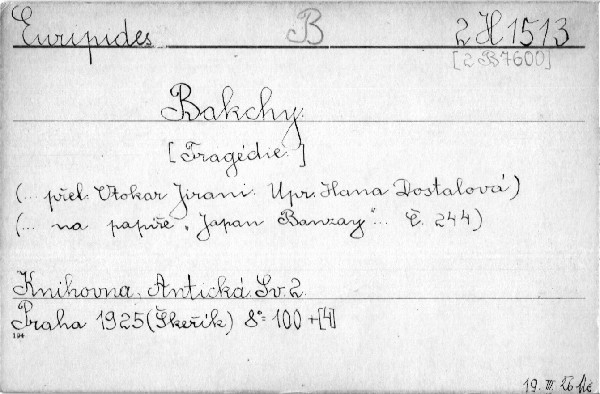 Euripides B 2 H 1513
[2 B 7600]
Bakchy.
[Tragédie.]
(... přel. Otokar Jirani. Upr. Hana Dostalová)
(... na papíře „Japan Banzay“... Č. 244)
Knihovna, Antická. Sv. 2.
Praha 1925 (Škeřík) 8° 100 + [4]
194
19. III. 26